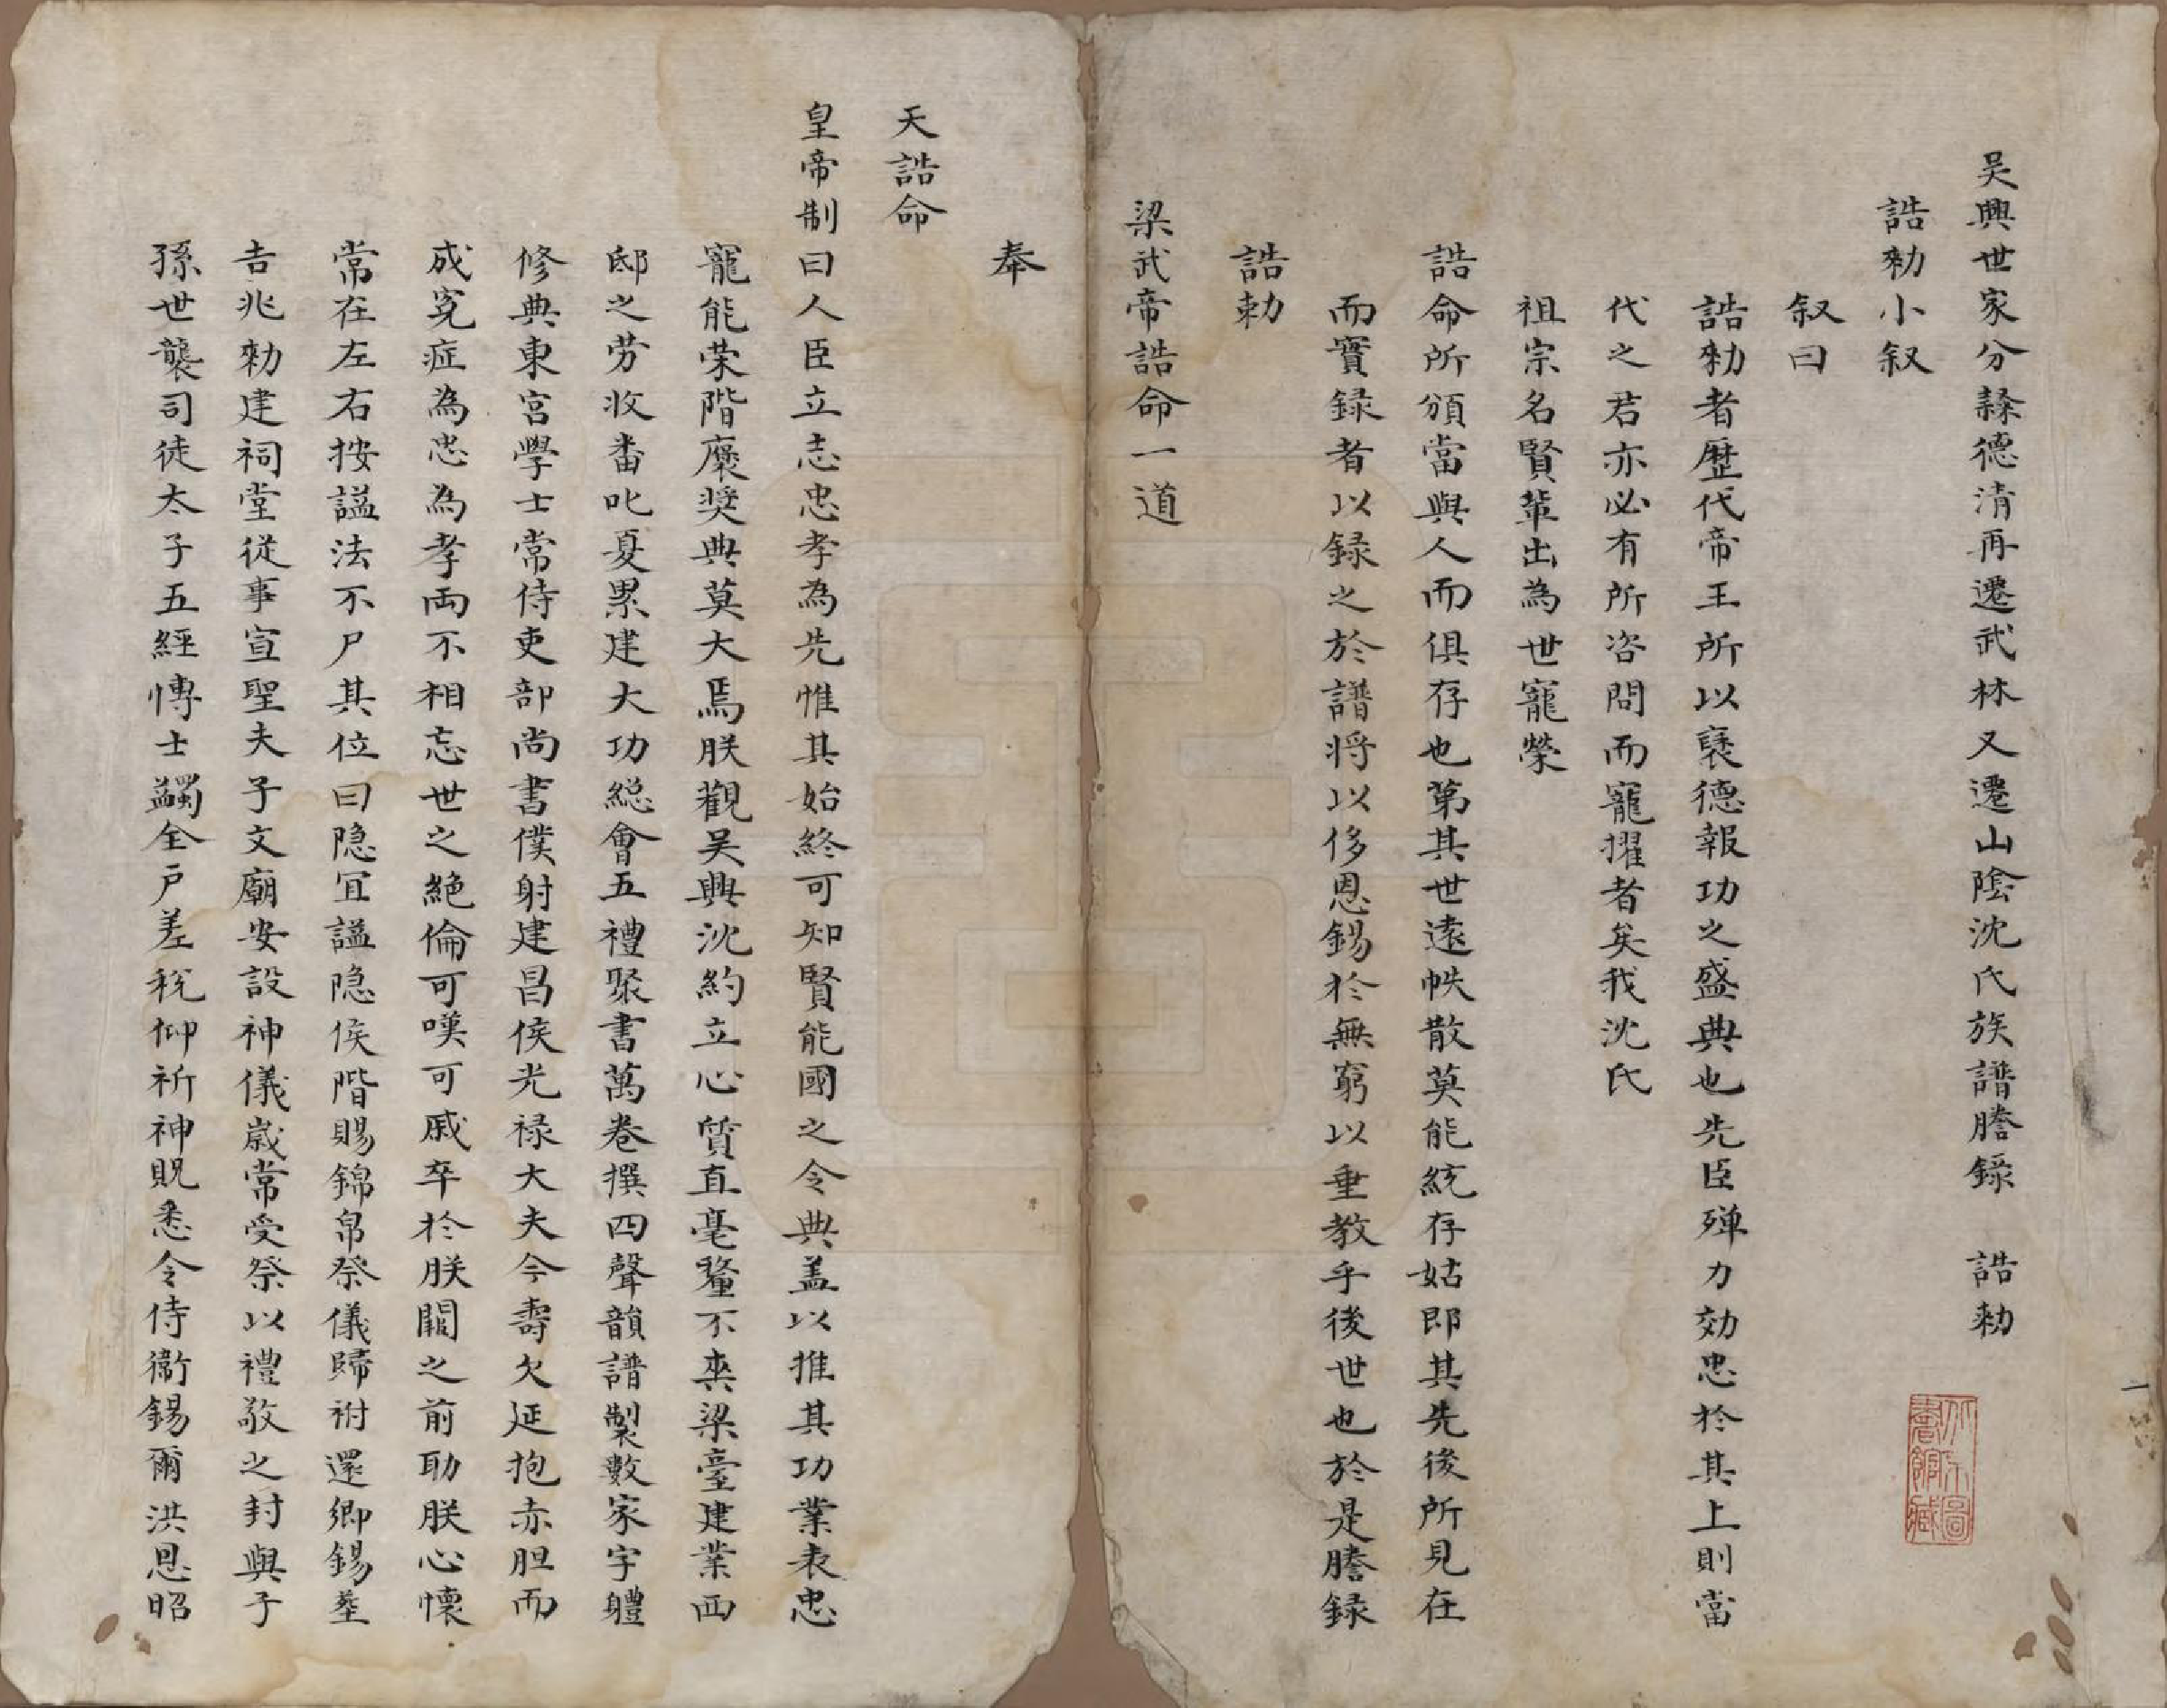 吴興世家分隸德清再遷武林又遷山陰沈氏族譜謄錄　誥勑
誥勑小叙
叙曰
誥勑者歷代帝王所以襃德報功之盛典也先臣殫力効忠於其上則當
代之君亦必有所咨問而寵擢者矣我沈氏
祖宗名賢輩出為世寵榮
誥命所頒當與人而俱存也第其世遠帙散莫能統存姑即其先後所見在
而實録者以録之於譜将以侈恩錫於無窮以垂教乎後世也於是謄録
誥勅
梁武帝誥命一道
奉
天誥命
皇帝制曰人臣立志忠孝為先惟其始終可知賢能國之令典盖以推其功業表忠
寵能荣階褒奬典莫大焉朕觀吴興沈約立心質直毫釐不爽梁臺建業西
邸之劳收畨叱夏累建大功総會五禮聚書萬卷撰四聲韻譜製數家宇軆
修典東宫學士常侍吏部尚書僕射建昌侯光禄大夫今壽欠延抱赤胆而
成寃症為忠為孝両不相忘世之絶倫可嘆可戚卒於朕闗之前助朕心懐
常在左右按謚法不尸其位曰隐宜謚隐侯階賜錦帛祭儀歸祔還鄉錫塟
吉兆勑建祠堂從事宣聖夫子文廟安設神儀歲常受祭以禮敬之封與子
孫世襲司徒太子五經博士蠲全户差税仰祈神貺悉令侍衛錫爾洪恩昭
一